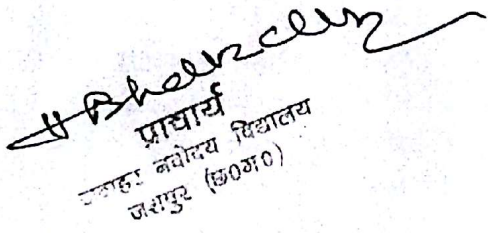 प्राचार्य
जवाहर नवोदय विद्यालय
जशपुर (छ०ग०)